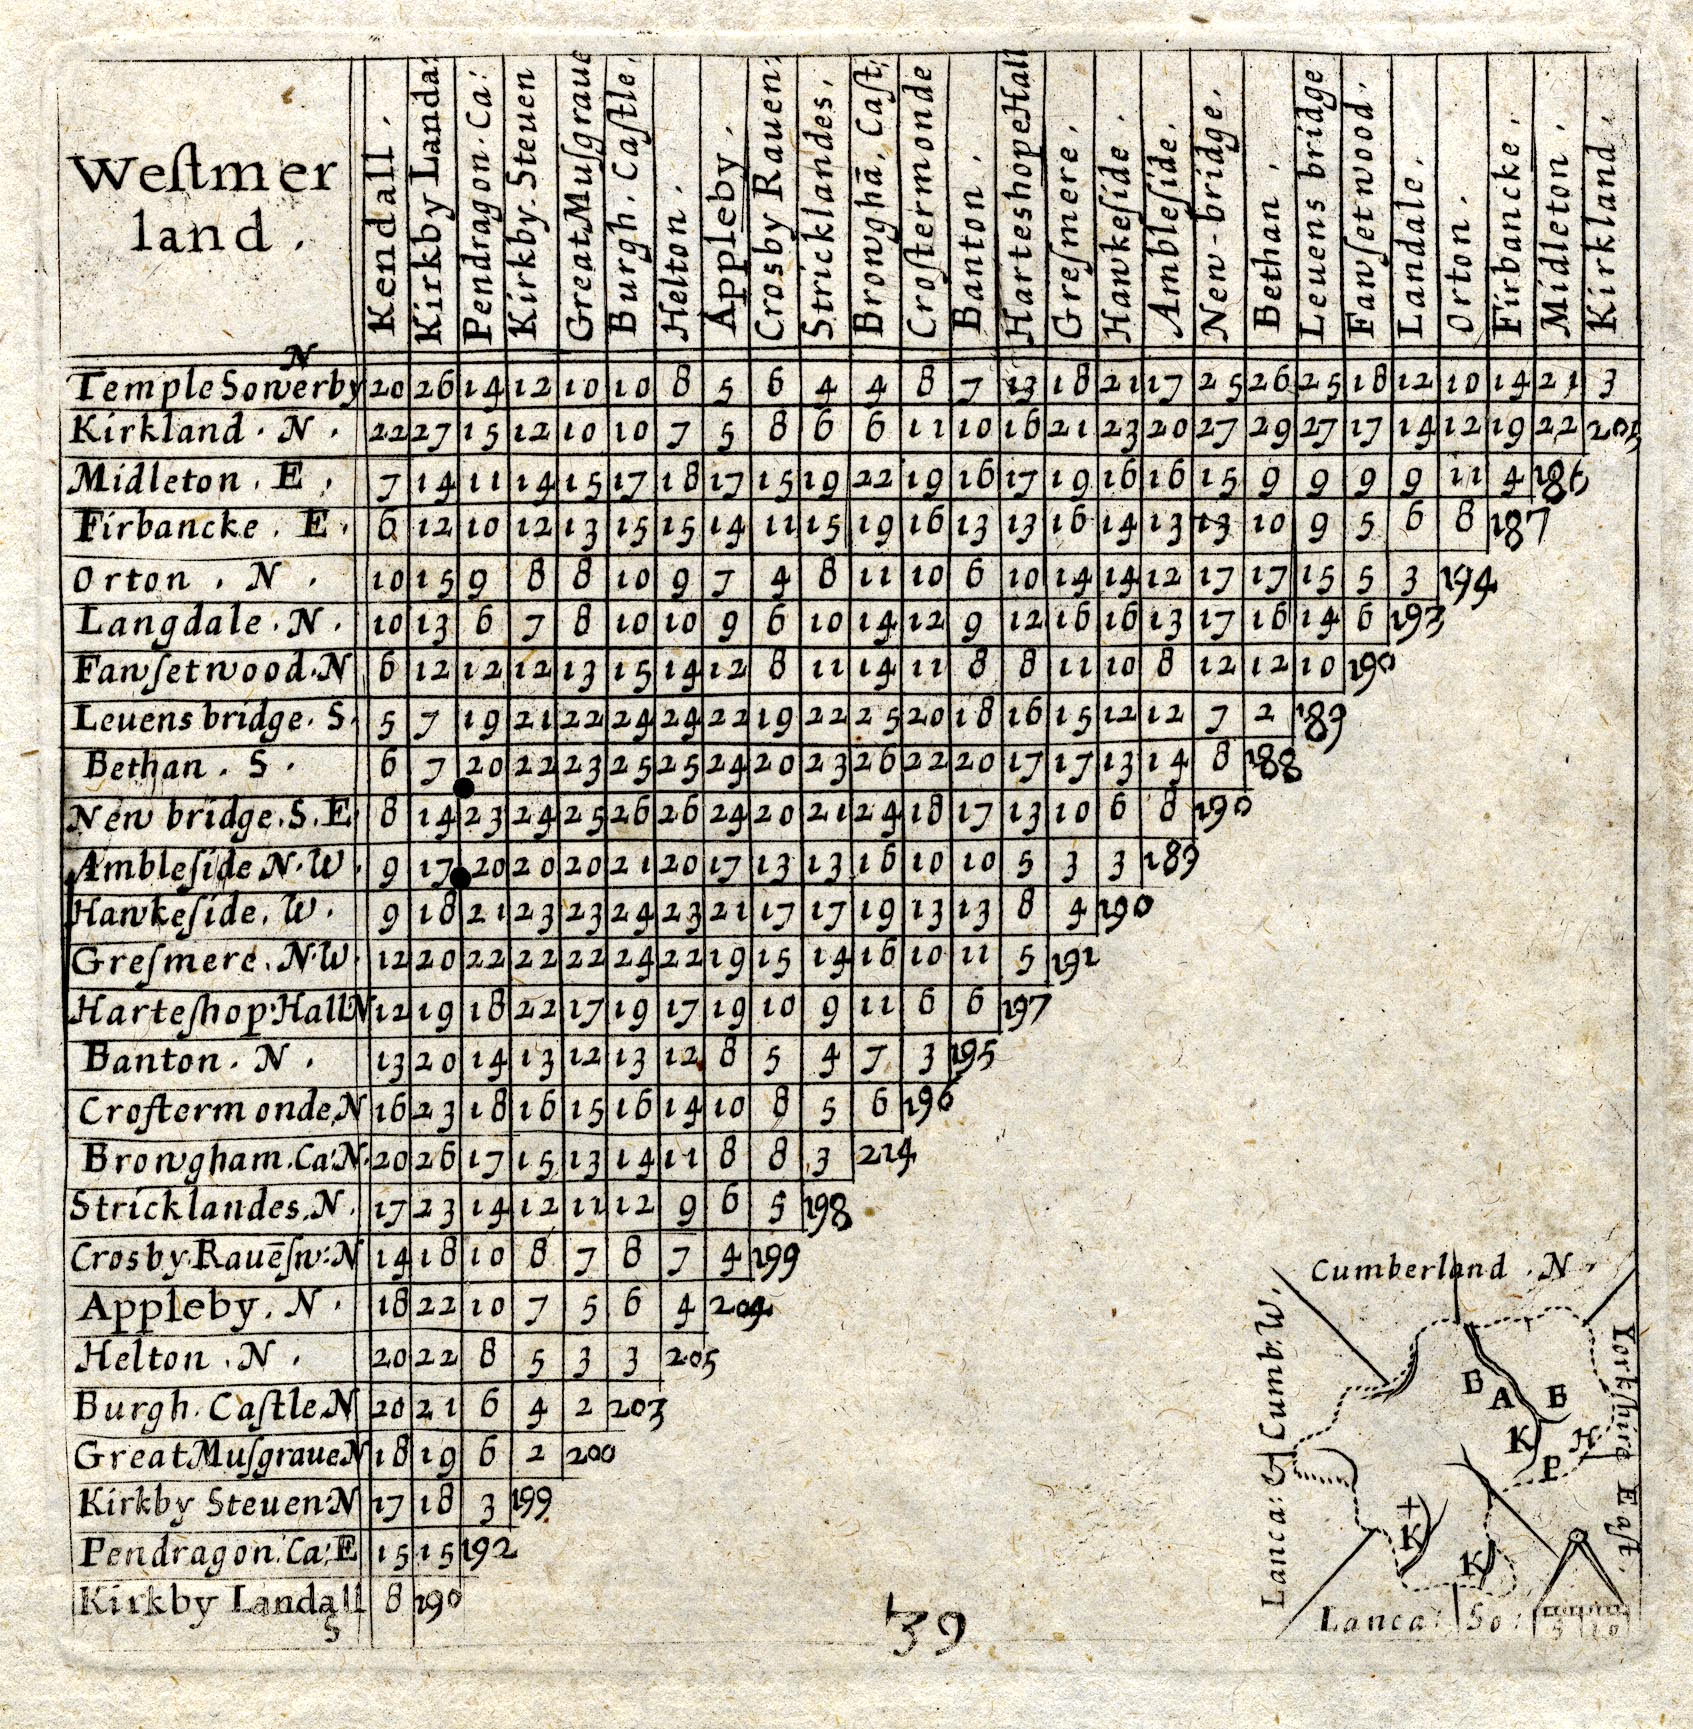 Weſtmer
land .
Kendall .
Kirkby Landa:
Pendragon . Ca:
Kirkby . Steuen
Great Muſgraue
Burgh . Caſtle .
Helton .
Appleby .
Crosby Rauen:
Stricklandes .
Browghā . Caſt;
Croſtermonde
Banton .
Harteshope Hall
Greſmere .
Hawkeſide .
Ambleſide .
New-bridge .
Bethan .
Leuens bridge
Fawſetwood .
Landale .
Orton .
Firbancke .
Midleton .
Kirkland .
N
Temple Sowerby 20 26 14 12 10 10 8 5 6 4 4 8 7 13 18 21 17 25 26 25 18 12 10 14 21 3
Kirkland . N . 22 27 15 12 10 10 7 5 8 6 6 11 10 16 21 23 20 27 29 27 17 14 12 19 22 205
Midleton . E . 7 14 11 14 15 17 18 17 15 19 22 19 16 17 19 16 16 15 9 9 9 9 11 4 186
Firbancke . E . 6 12 10 12 13 15 15 14 11 15 19 16 13 13 16 14 13 13 10 9 5 6 8 187
Orton . N . 10 15 9 8 8 10 9 7 4 8 11 10 6 10 14 14 12 17 17 15 5 3 194
Langdale . N . 10 13 6 7 8 10 10 9 6 10 14 12 9 12 16 16 13 17 16 14 6 193
Fawſetwood . N 6 12 12 12 13 15 14 12 8 11 14 11 8 8 11 10 8 12 12 10 190
Leuens bridge . S . 5 7 19 21 22 24 24 22 19 22 25 20 18 16 15 12 12 7 2 189
Bethan . S . 6 7 20 22 23 25 25 24 20 23 26 22 20 17 17 13 14 8 188
New bridge . S . E 8 14 23 24 25 26 26 24 20 21 24 18 17 13 10 6 8 190
Ambleſide N . W . 9 17 20 20 20 21 20 17 13 13 16 10 10 5 3 3 189
Hawkeſide . W . 9 18 21 23 23 24 23 21 17 17 19 13 13 8 4 190
Greſmere . N . W . 12 20 22 22 22 24 22 19 15 14 16 10 11 5 191
Harteſhop Hall N 12 19 18 22 17 19 17 19 10 9 11 6 6 197
Banton . N . 13 20 14 13 12 13 12 8 5 4 7 3 195
Croſtermonde N 16 23 18 16 15 16 14 10 8 5 6 196
Browgham . Ca: N . 20 26 17 15 13 14 11 8 8 3 214
Stricklandes . N . 17 23 14 12 11 12 9 6 5 198
Crosby . Rauēſw: N 14 18 10 8 7 8 7 4 199
Appleby . N . 18 22 10 7 5 6 4 204
Helton . N . 20 22 8 5 3 3 205
Burgh . Caſtle N 20 21 6 4 2 203
Great Muſgraue N 18 19 6 2 200
Kirkby Steuen: N 17 18 3 199
Pendragon . Ca: E 15 15 192
Kirkby Landall 8 190
S
39
Cumberland . N .
Cumb: W .
Lanca: &
Yorkſhire Eaſt .
B A B
K H
P
K
K
Lanca: So:
5 10